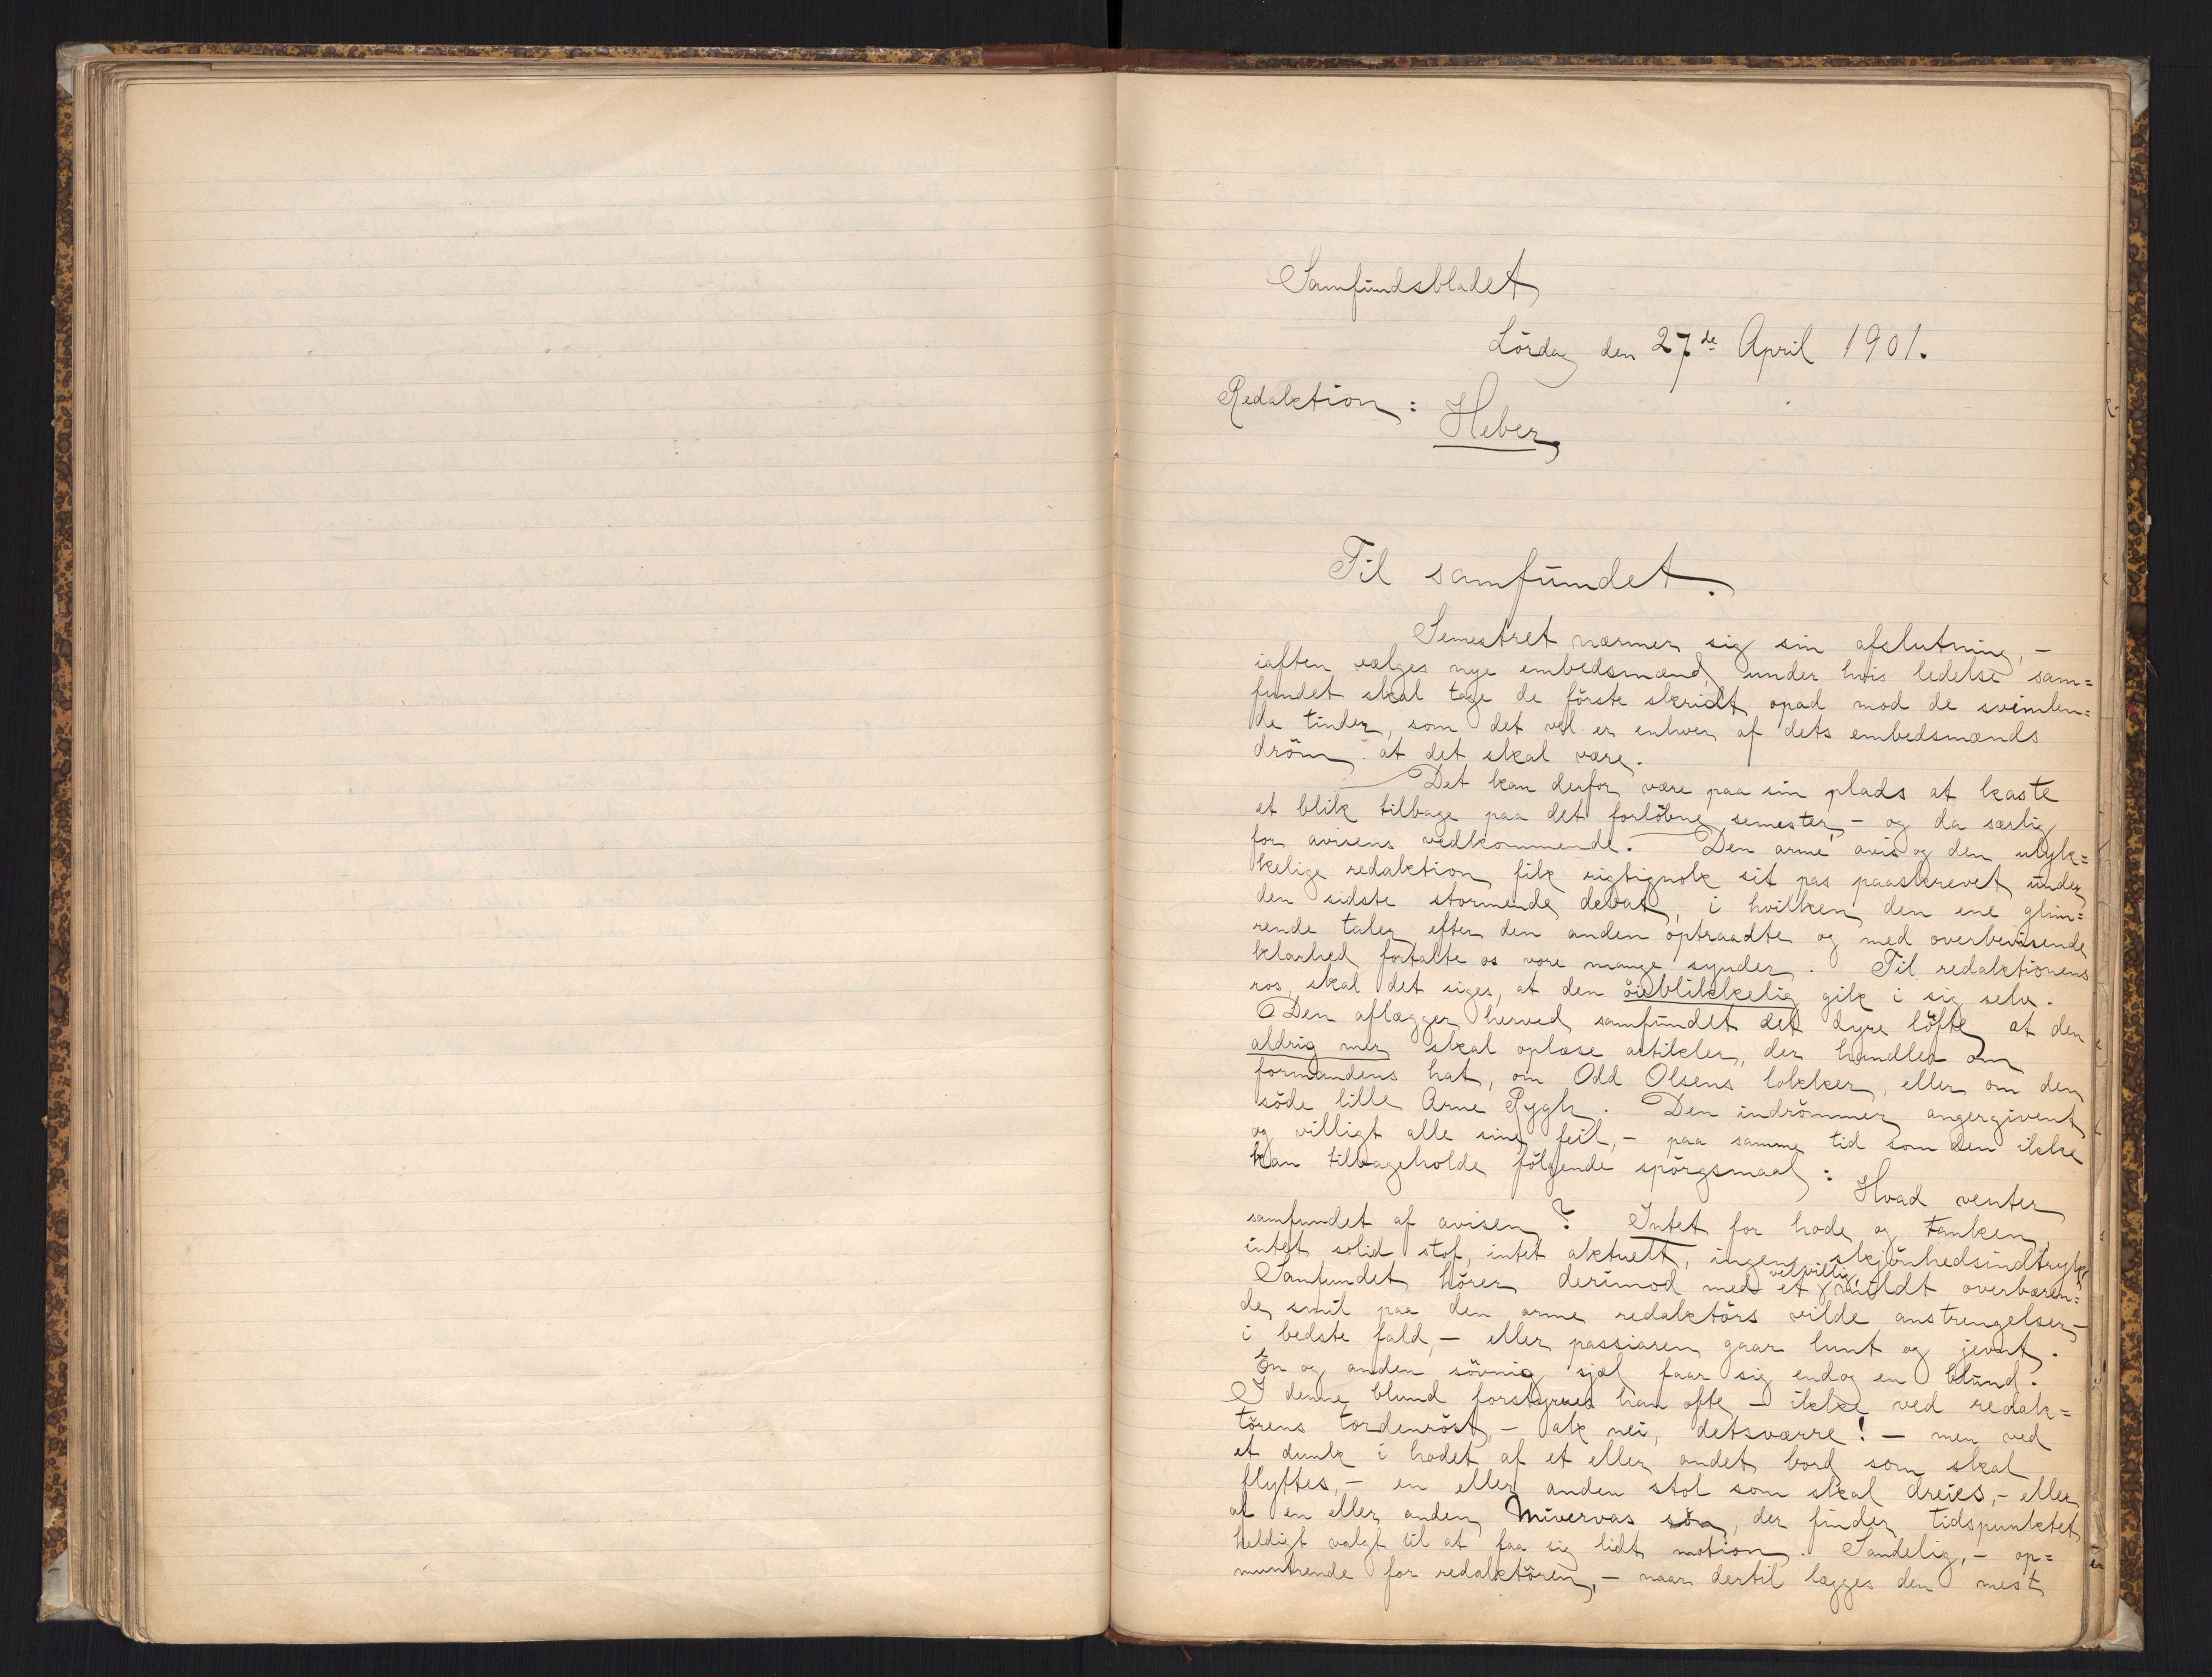 Samfundsbladet
Lördag den 27de April 1901.
Redaktion: Heber
Til samfundet.
Semestret nærmer sig sin afslutning, –
iaften vælges nye embedsmænd, under hvis ledelse sam=
fundet skal tage de förste skridt opad mod de svimlen=
de tinder, som det vel er enhver af dets embedsmænds
dröm at det skal være.
Det kan derfor være paa sin plads at kaste
et blik tilbage paa det forlöbne semester, – og da særlig
for avisens vedkommende. Den arme avis og den ulyk=
kelige redaktion fik rigtignok sit pas paaskrevet under
den sidste stormende debat, i hvilken den ene glim=
rende taler efter den anden optraadte og med overbevisende
klarhed fortalte os vore mange synder. Til redaktionens
ros skal det siges, at den öieblikkelig gik i sig selv.
Den aflægger herved samfundet det dyre löfte at den
aldrig mer skal oplæse artikler, der handler om
formandens hat, om Odd Olsens lokker, eller om den
söde lille Arne Rygh. Den indrömmer angergivent
og villigt alle sine feil, – paa samme tid som den ikke
kan tilbageholde fölgende spörgsmaal: Hvad venter
samfundet af avisen? Intet for hode og tanken,
intet solid stof, intet aktuelt, ingen skjönhedsindtryk!
Samfundet hörer derimod med et velvillig, mildt overbæren=
de smil paa den arme redaktörs vilde anstrengelser –
i bedste fald, – eller passiaren gaar lunt og jevnt.
En og anden sövnig sjæl faar sig endog en blund.
I denne blund forstyrres han ofte – ikke ved redak=
törens tordenröst – ak nei, detsværre! – men ved
et dunk i hodet af et eller andet bord som skal
flyttes, – en eller anden stol som skal dreies, – eller
af en eller anden Minervas sön, der finder tidspunktet
heldigt valgt til at faa sig lidt motion. Sandelig, – op=
muntrende for redaktören, – naar dertil lægges den mest